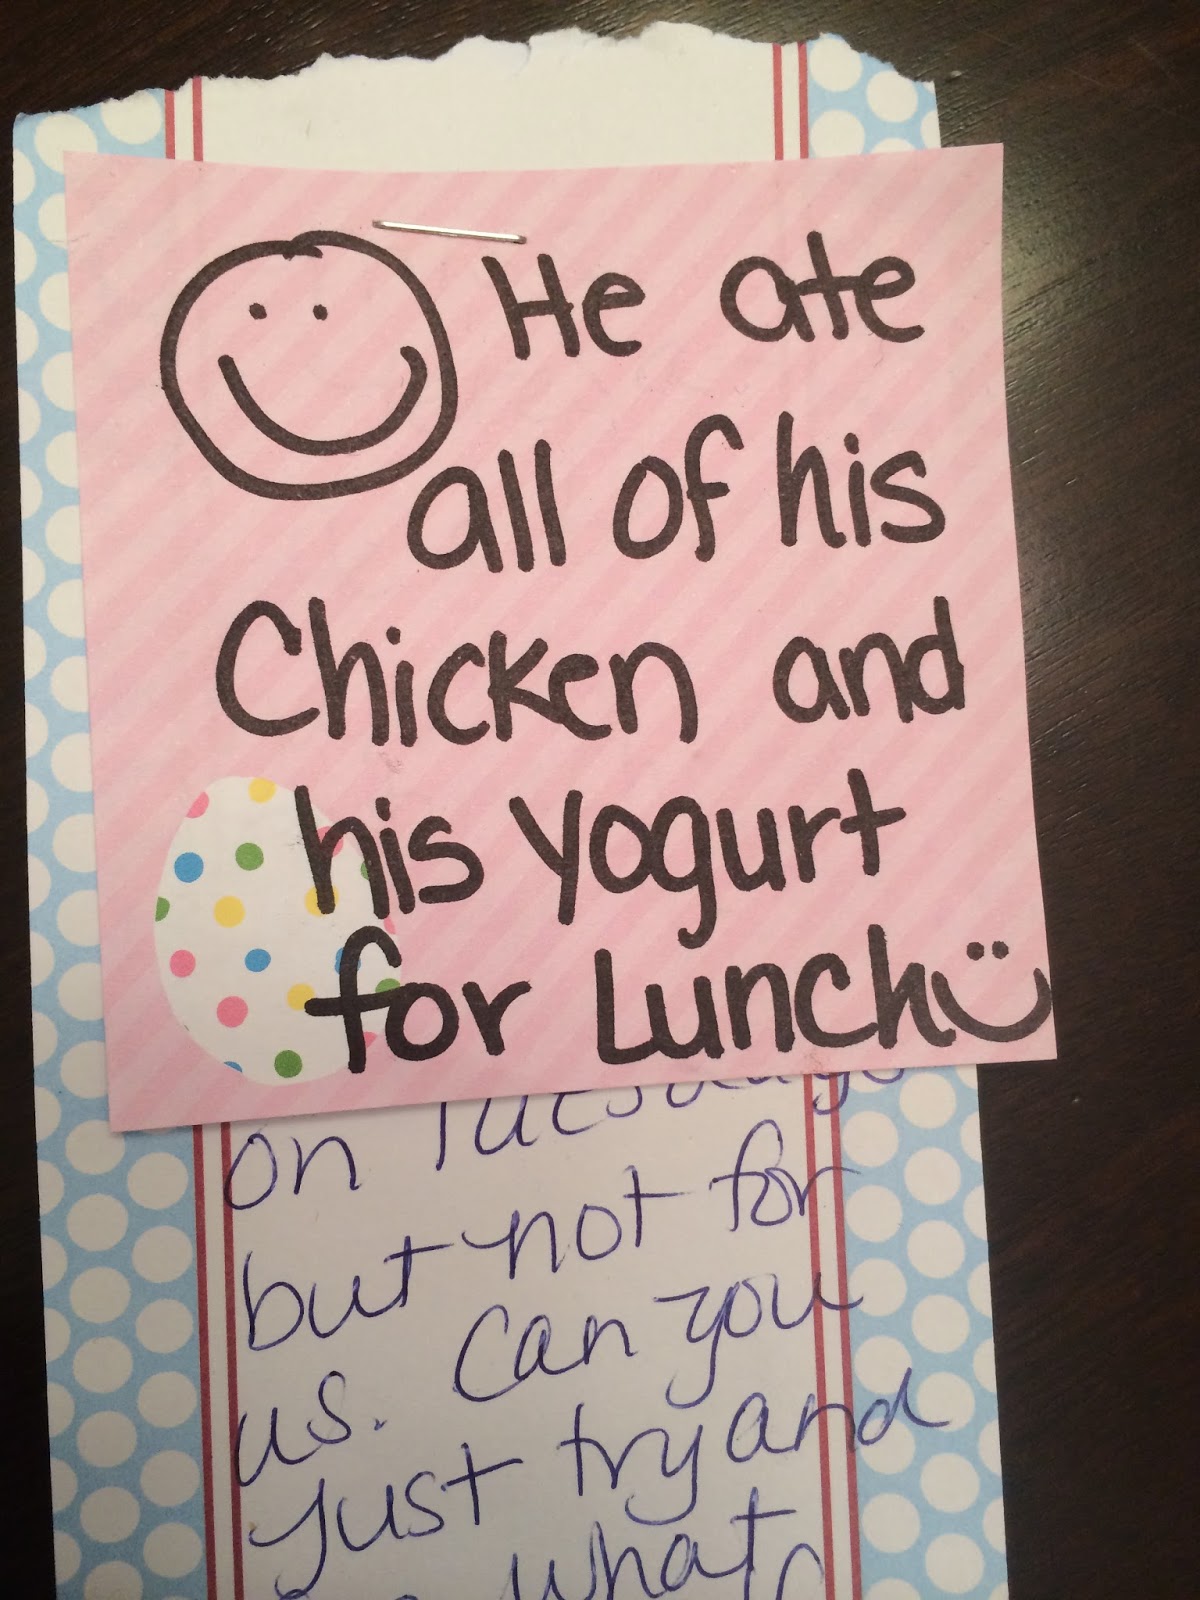 He ate
all of his
Chicken and
his yogurt
for Lunch
on Tuesdays
but not for
us. Can you
just try and
what